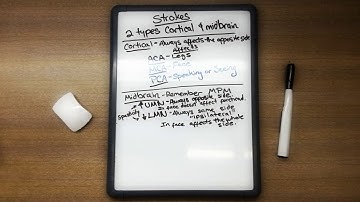 Strokes
2 types Cortical & midbrain
Cortical - Always affects the opposite side
Affects
ACA - Legs
MCA - Face
PCA - Speaking or
Midbrain - Remember MPM
↑ UMN - Always opposite side
In face doesn't affect forehead.
↓ LMN - Always same side
"ipsilateral"
In face affects the whole
side.